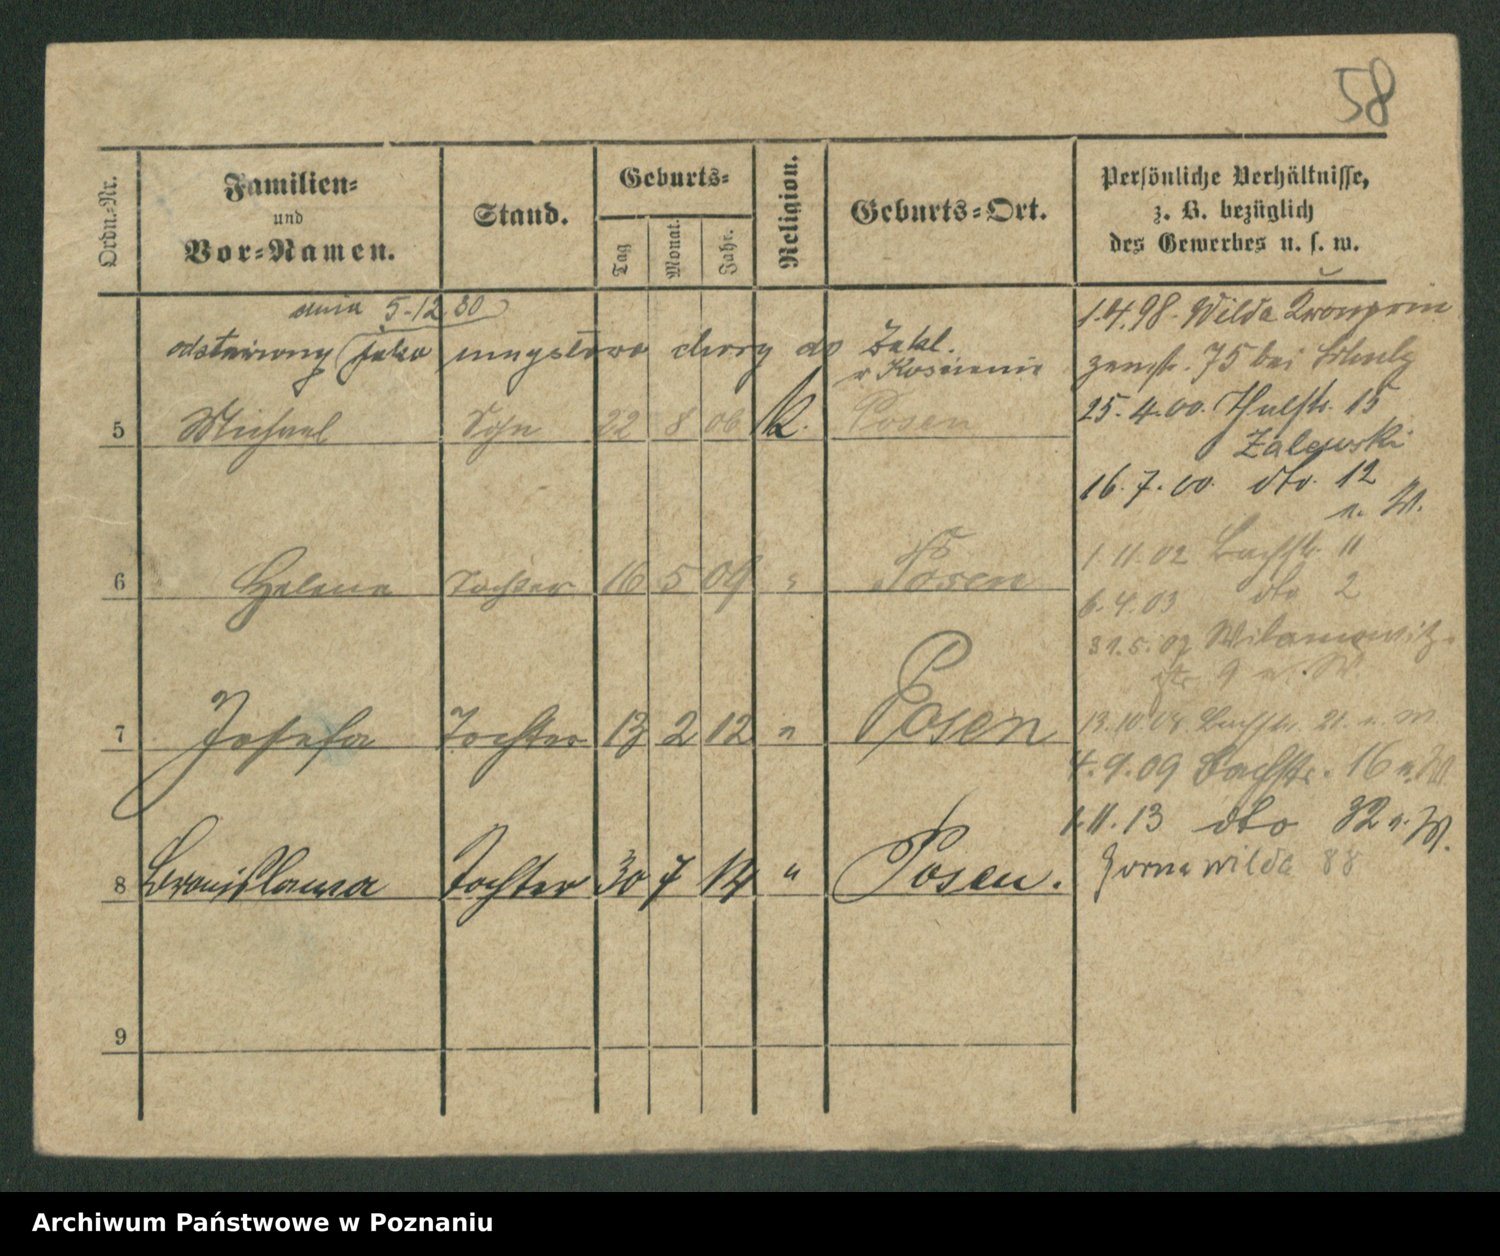 58
Ordn.-Nr.
Familien-
und
Vor-Namen.
Stand.
Geburts-
Tag
Monat.
Jahr.
Religion.
Geburts-Ort.
Persönliche Verhältnisse,
z. B. bezüglich
des Gewerbes u. s. w.
dnia 5.12.30
odstawiony jako umysłowo chory do Zakł.
w Kościanie
5 Michael Sohn 22 8 06 K. Posen
6 Helene Tochter 16 5 09 " Posen
7 Josefa Tochter 13 2 12 " Posen
8 Bronislawa Tochter 30 7 14 " Posen.
9
1.4.98. Wilda Kronprin
zenstr. 75 bei
25.4.00. Thalstr. 15
Zalewski
16.7.00. dto. 12
n. W.
1.11.02 Bachstr. 11
6.4.03 dto 2
31.5.07 Wilamowitz-
str. 9 n. W
13.10.08 Bachstr. 21. n. W
4.9.09 Bachstr. 16 n. W.
1.11.13 dto 32 n. W.
Gorna wilda 88
Archiwum Państwowe w Poznaniu